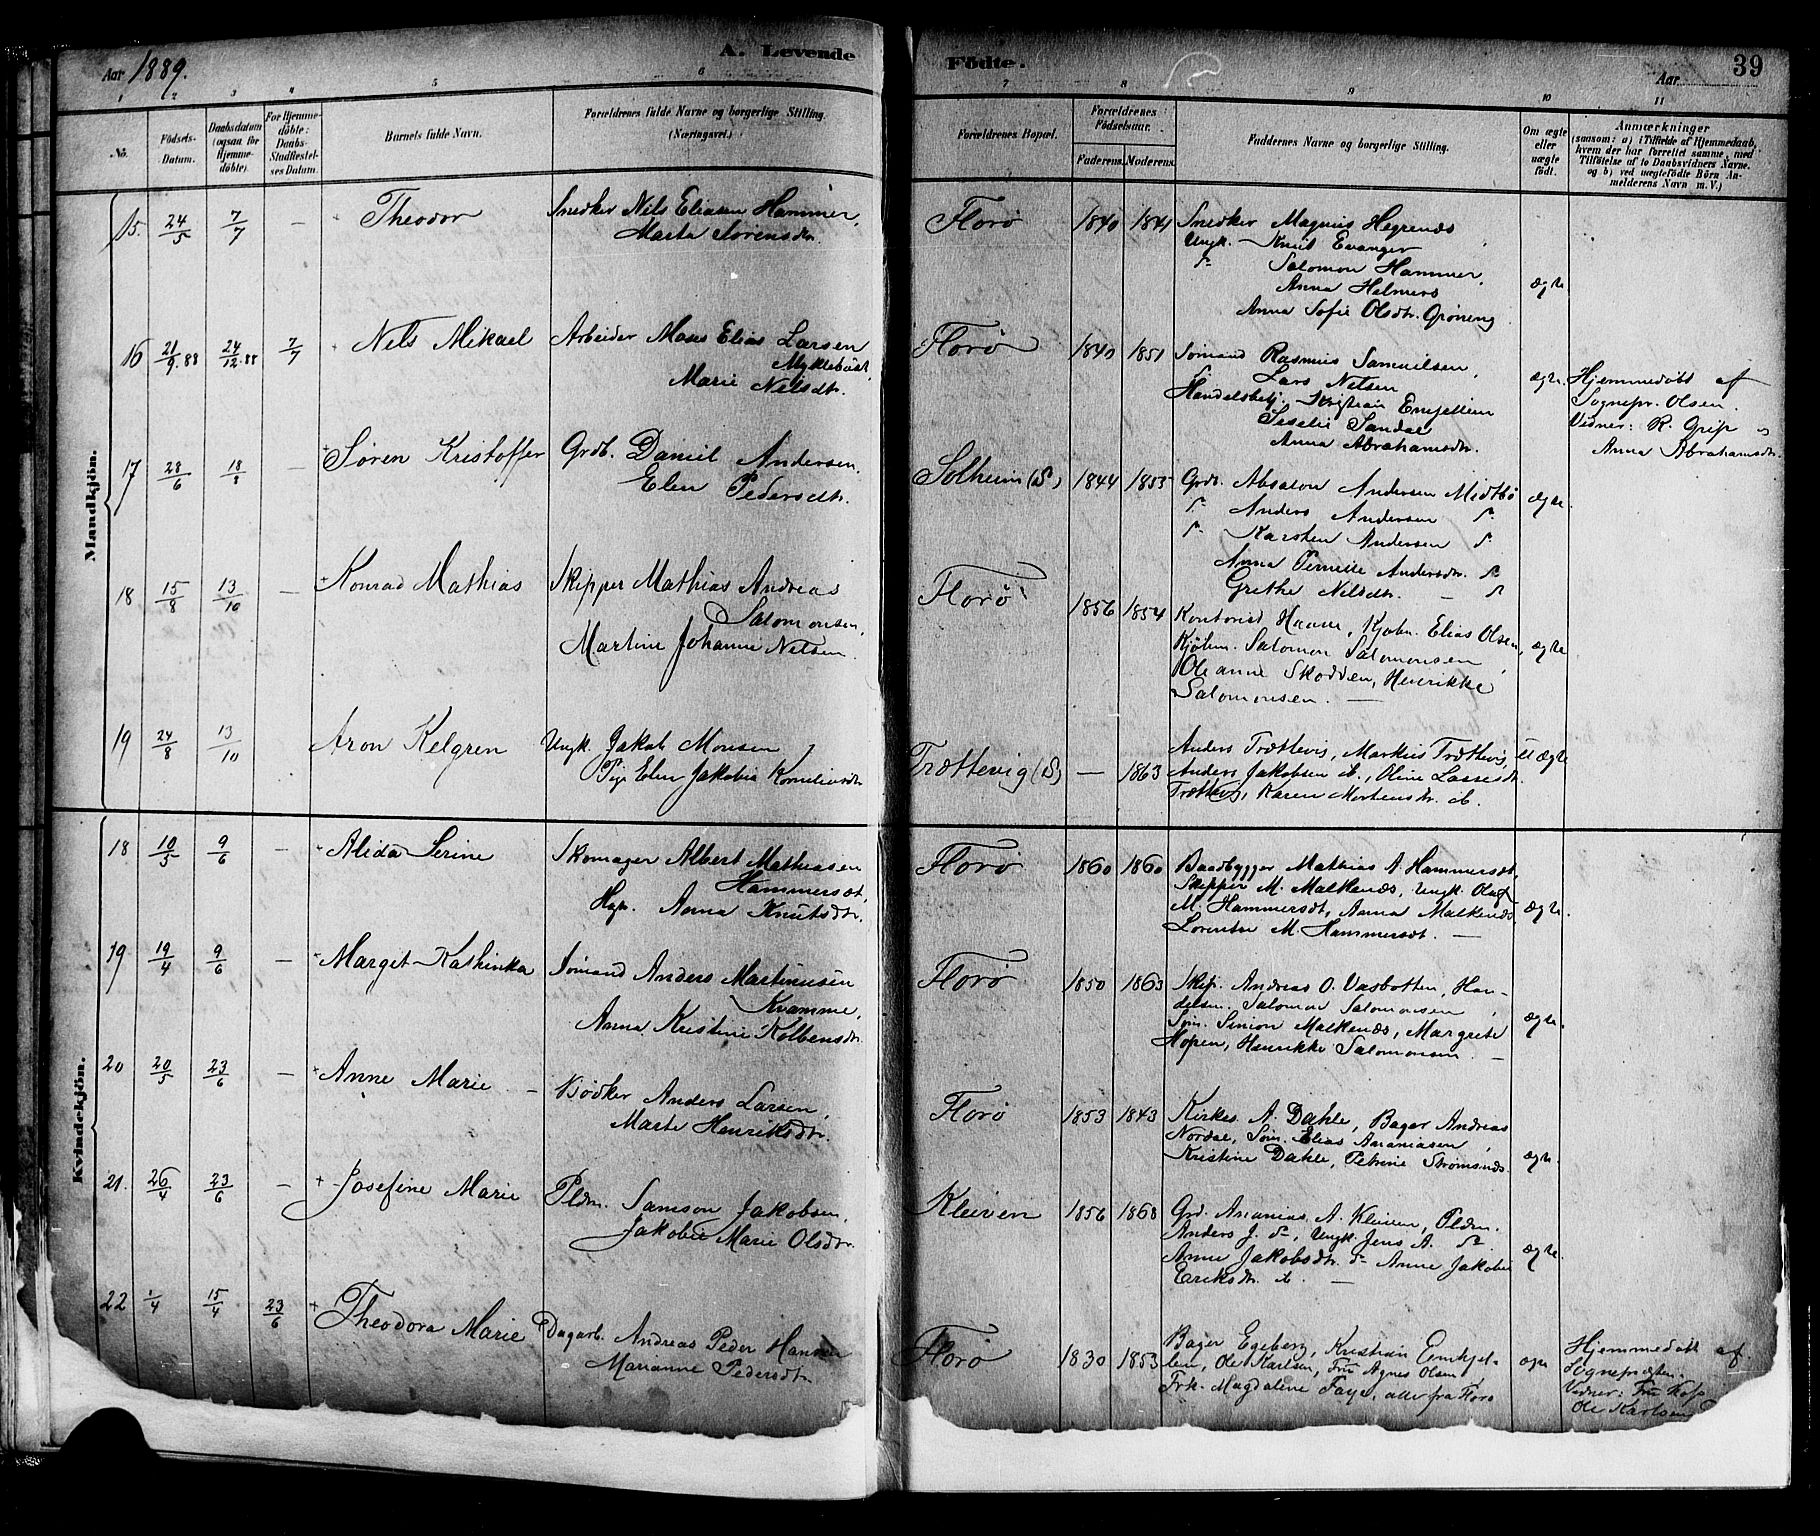 Aar 1889.
A. Levende
Fødte.
Aar
39
1 2 3 4 5 6 7 8 9 10 11
No.
Fødsels-Datum.
Daabsdatum (ogsaa for Hjemme-døbte).
For Hjemme-døbte: Daabs-Stadfæstel-ses Datum.
Barnets fulde Navn.
Forældrenes fulde Navne og borgerlige Stilling. (Næringsvei.)
Forældrenes Bopæl.
Forældrenes Fødselsaar.
Faderens. Moderens.
Faddernes Navne og borgerlige Stilling.
Om ægte eller uægte født.
Anmærkninger
(saasom: a) i Tilfælde af Hjemmedaab, hvem der har forrettet samme, med Tilføielse af to Daabsvidners Navne. og b) ved uægtefødte Børn An-melderens Navn m. V.)
Mandkjön.
15. 24/5 7/7 — Theodor
Snedker Nils Eliasen Hammer,
Marta Sørensdtr.
Florø 1840 1841
Snedker Magnus Hegrenæs
Ungk. — Knut Evanger
do Salomon Hammer,
Anna Helmers
Anna Sofie Olsdtr. Grøneng
ægte
16 21/9.88 24/12.88 7/7 Nils Mikael
Arbeider Moses Elias Larsen
Myklebust,
Marie Nelsdtr.
Florø 1840 1851
Sømand Rasmus Samuelsen,
Lars Nelsen
Handelsbetj. Kristian
Sandal
Anna Abrahamsdtr.
ægte.
Hjemmedøbt af
Sognepr. Olsen.
Vidner: R. Grip og
Anna Abrahamsdtr.
17 28/6 18/8 — Søren Kristoffer
Grdb. Daniel Andersen,
Elen Pedersdtr.
Solheim (S) 1844 1853
Grdb. Absalon Andersen Midtbø
do Anders Andersen do
do Karsten Andersen do
Anna Pernille Andersdtr. do
Grethe Nilsdtr. — do
ægte
18 15/8 13/10 — Konrad Mathias
Skipper Mathias Andreas
Salomonsen,
Martine Johanne Nelsen.
Florø 1856 1854
Kontorist Haave, Kjøbm. Elias Olsen
Kjøbm. Salomon Salomonsen,
Oleanne Skodden, Henrikke
Salomonsen. —
ægte
19 24/8 13/10 Aron Kelgren
Ungk. Jakob Monsen,
Pige Elen Jakobia Korneliusdtr.
Trættevig (S) — 1863
Anders Trættevig, Markus Trættevig,
Anders Jakobsen ib., Oline Lassesdtr.
Trættevig, Karen Mortensdtr. ib.
uægte
Kvindekjön.
18 10/5 9/6 — Alida Serine
Skomager Albert Mathiasen
Hammersæt,
Anna Knutsdtr.
Florø 1860 1860
Baadbygger Mathias A. Hammersæt,
Skipper M. Malkenæs, Ungk. Oluf
M. Hammersæt, Anna Malkenæs
M. Hammersæt. —
ægte.
19 19/4 9/6 — Marget Kathinka
Sømand Anders Martinusen
Kvamme,
Anna Kristine Kolbensdtr.
Florø 1850 1863
Skip. Andreas O. Vasbotten, Han-
delsm. Salomon Salomonsen,
Søm. Simon Malkenæs, Margrete
Hopen, Henrikke Salomonsen —
ægte.
20 20/5 23/6 — Anne Marie —
Bødker Anders Larsen,
Marte Henriksdtr.
Florø 1853 1843
Kirkes. A. Dahle, Bager Andreas
Nordal, Søm. Elias Ananiasen,
Kristine Dahle, Petrine Strømsnæs
ægte.
21. 26/4 23/6 — Josefine Marie
Pldm. Samson Jakobsen,
Jakobie Marie Olsdtr.
Kleiven 1856 1868
Grd. Ananias A. Kleiven, Pldm.
Anders J. do, Ungk. Jens A. do
Anne Jakobsdtr. do Anne Jakobie
Eriksdtr. ib. —
ægte
22 1/4 15/4 23/6 Theodora Marie
Dagarb. Andreas Peder Hansen
Marianne Pedersdtr.
Florø 1830 1853
Bager Egeberg, Kristian Emhjel-
len, Ole Karlsen, Fru Agnes Olsen
Frk. Magdalene Faye, alle fra Florø
ægte
Hjemmedøbt af
Sognepræsten.
Vidner: Fru
Ole Karlsen